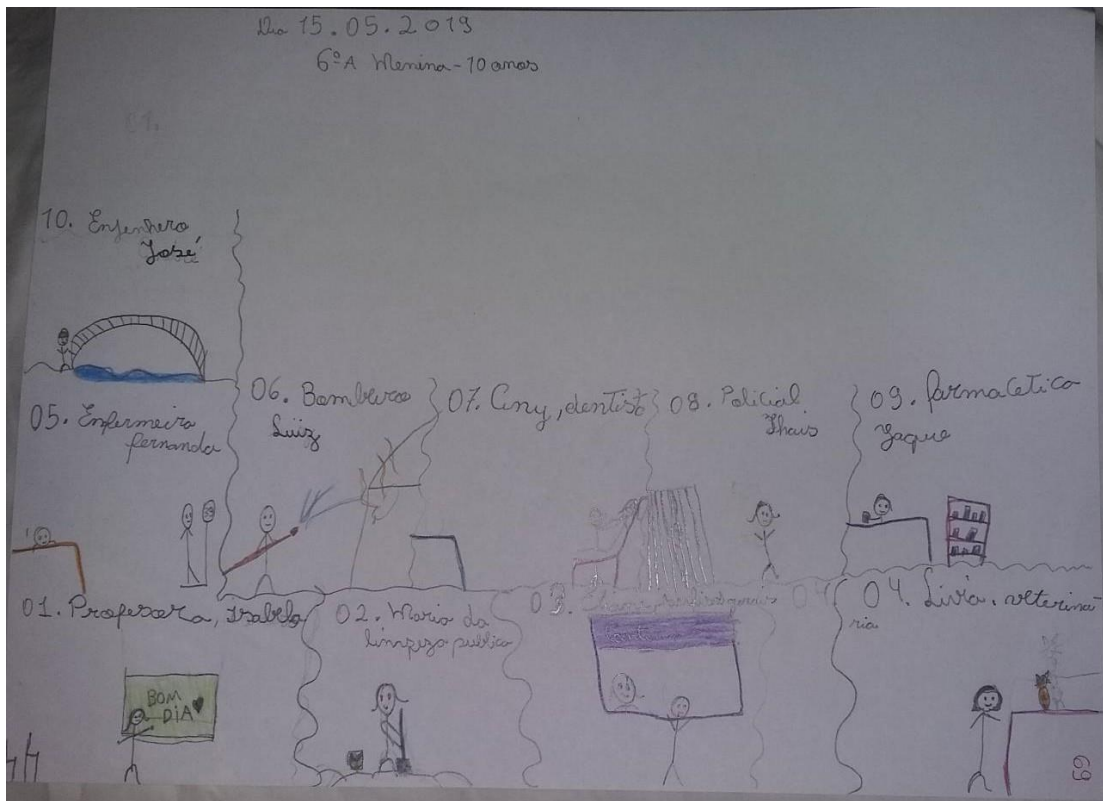 Dia 15.05.2019
6ºA Menina - 10 anos
01.
10. Enjenhero
José
05. Enfermeira
fernanda
06. Bombeiro
Luiz
07. Any, dentist
08. Policial
Thais
09. farmacetico
Jaque
01. Professora, Isabela
02. Maria da
limpeza publica
03.
04. Livia. veteriná
ria
BOM
DIA
69